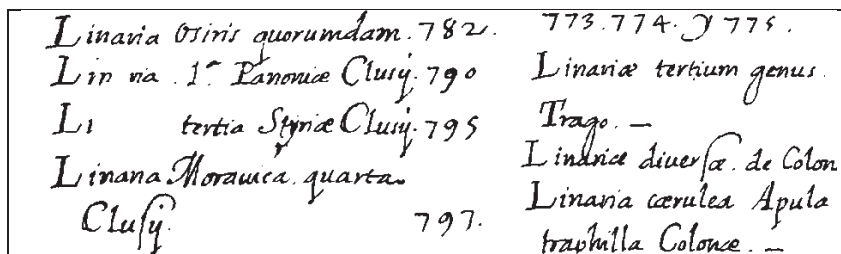 Linaria Osiris quorumdam. 782.
Lin ria 1ª Panoniæ Clusij. 790
Li tertia Styriæ Clusij. 795
Linaria Moravica. quarta.
Clusij. 797.
773. 774. y 775.
Linariæ tertium genus.
Trago. —
Linariæ diversæ. de Colon
Linaria cærulea Apula
Colonæ. —